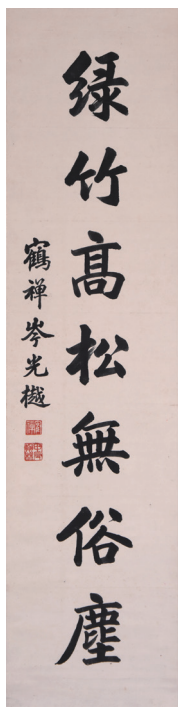 绿竹高松無俗塵
鶴禅岑光樾